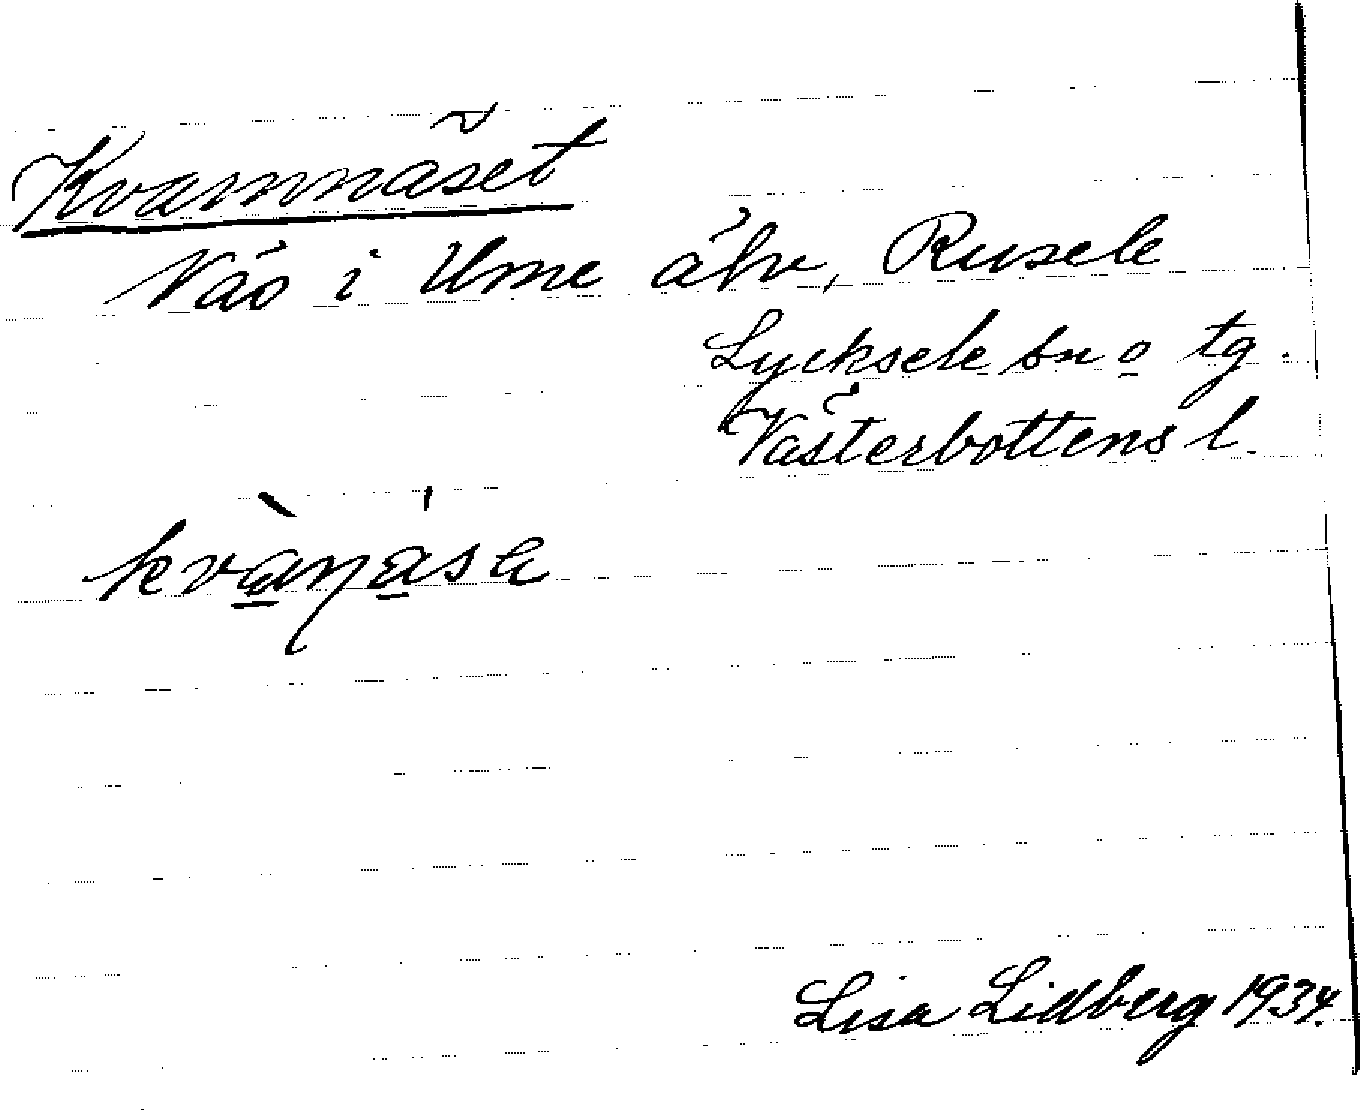 Kvarnnäset
Näs i Ume älv, Rusele
Lycksele sn o tg.
Västerbottens l.
Lisa Lidberg 1934.